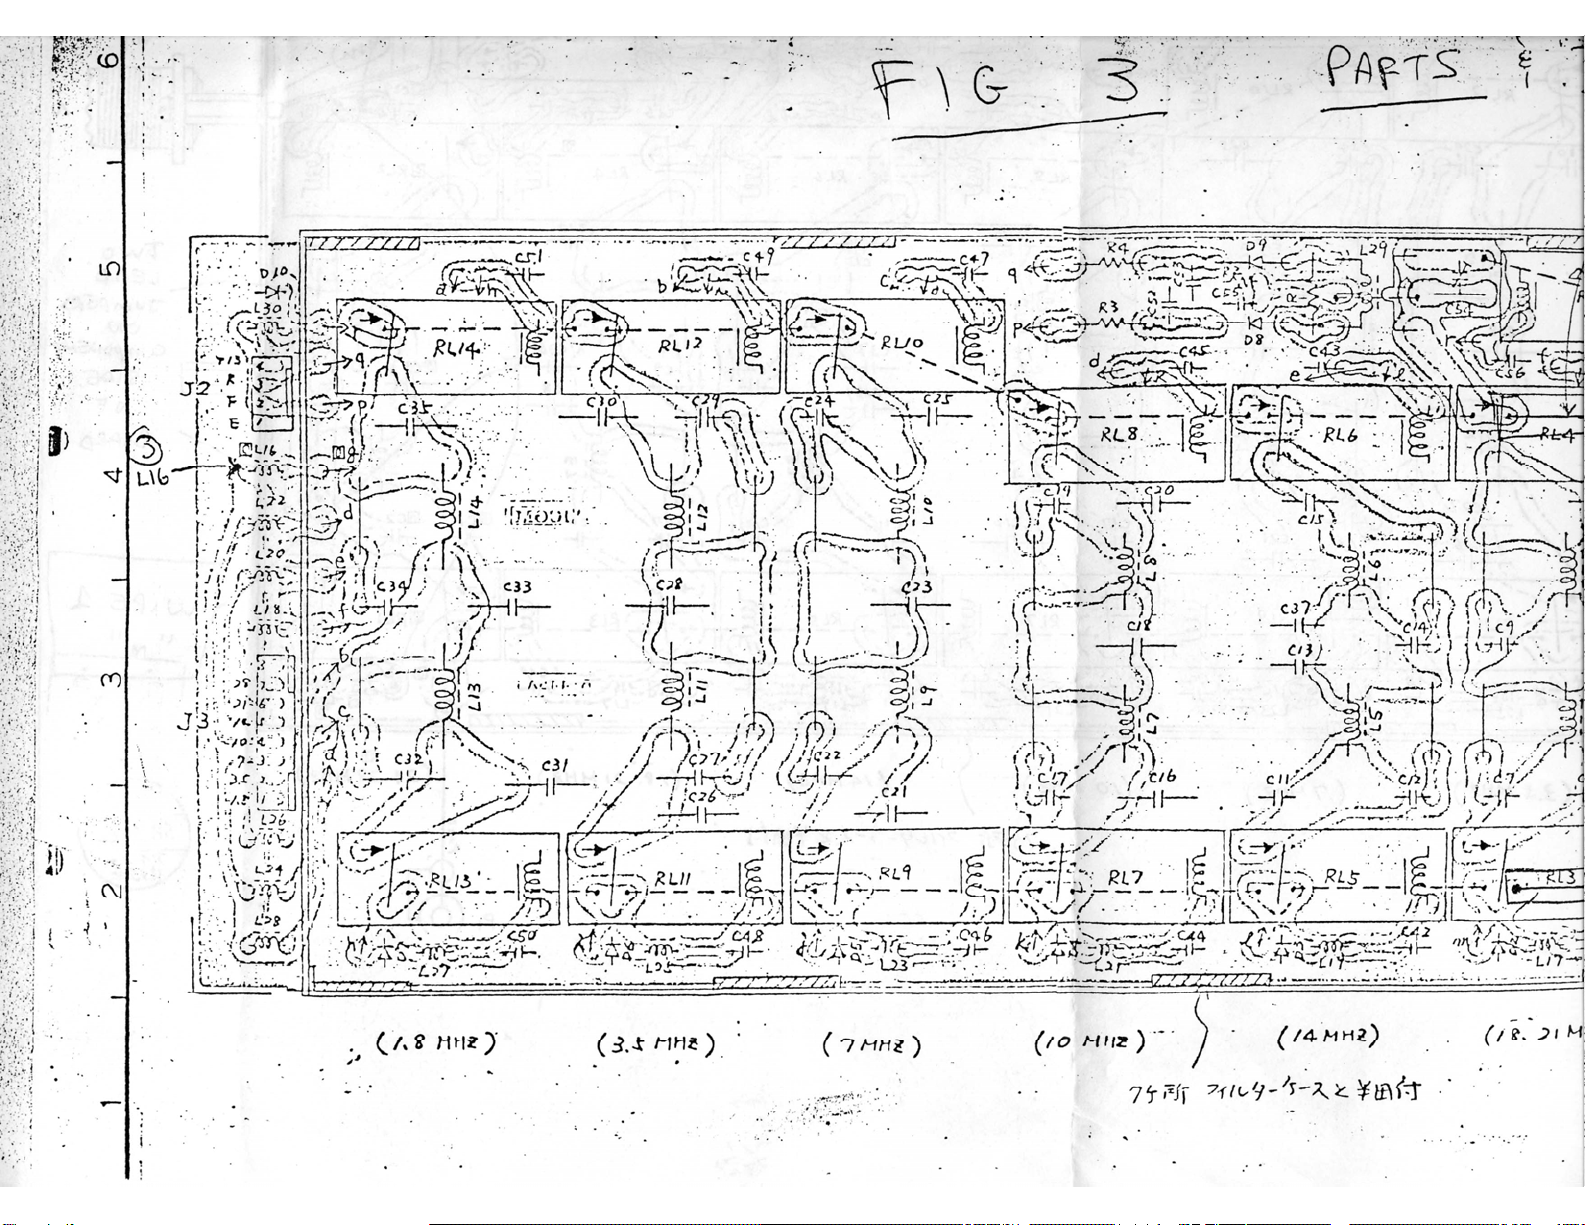 6
FIG 3 PARTS &
5
D10
L30
C51
C49
C47
R4
D9
L29
a
b
c
q
C54
R3
P
D8
RL14
RL12
RL10
d
C45
C43
e
C56
J2
J13
R
F
E
q
P
C35
C30
C29
C24
C25
RL8
RL6
RL4
3
L16
L16
8
4
L22
d
L14
L12
L10
C19
C20
C15
L20
e
L8
L6
L18
f
C34
C33
C28
C23
C37
C18
C14
C9
C13
b
3
L13
L11
L9
L7
L5
J3
28
21 6
14 5
10 4
7 3
3.5 2
1.5 1
c
a
C32
C31
C27
C26
C22
C21
C17
C16
C11
C12
C7
L26
2
L24
L28
RL13
RL11
RL9
RL7
RL5
RL3
C50
C48
C46
C44
C42
L27
L25
L23
L21
L19
L17
(1.8 MHZ) (3.5 MHZ) (7 MHZ) (10 MHZ) (14 MHZ) (18. 21 M
1
7ケ所 フィルターケースと半田付